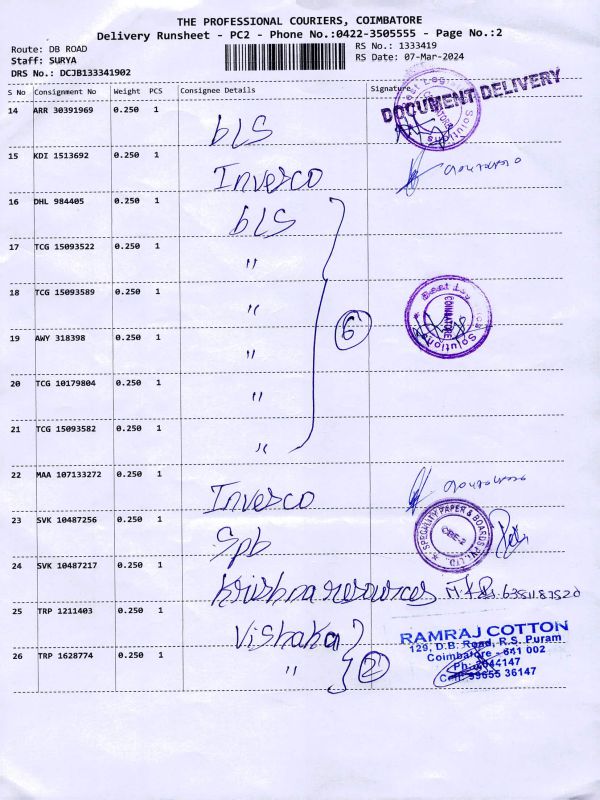 THE PROFESSIONAL COURIERS, COIMBATORE
Delivery Runsheet - PC2 - Phone No.:0422-3505555 - Page No.:2
Route: DB ROAD
RS No.: 1333419
Staff: SURYA
RS Date: 07-Mar-2024
DRS No.: DCJB133341902
S No Consignment No Weight PCS Consignee Details Signature
DOCUMENT DELIVERY
14 ARR 30391969 0.250 1 bLS
Solutions
15 KDI 1513692 0.250 1 Invesco
16 DHL 984405 0.250 1 bLS
17 TCG 15093522 0.250 1 "
18 TCG 15093589 0.250 1 "
6
COIMBATORE
Solutions
19 AWY 318398 0.250 1 "
20 TCG 10179804 0.250 1 "
21 TCG 15093582 0.250 1 "
22 MAA 107133272 0.250 1 Invesco
23 SVK 10487256 0.250 1 Spb
SPECIALITY PAPER & BOARDS PVT. LTD.
CBE-2
24 SVK 10487217 0.250 1 Krishna resources
25 TRP 1211403 0.250 1 Vishaka
26 TRP 1628774 0.250 1 "
2
RAMRAJ COTTON
129, D.B. Road, R.S. Puram
Coimbatore - 641 002
Ph: 2544147
Cell: 99655 36147